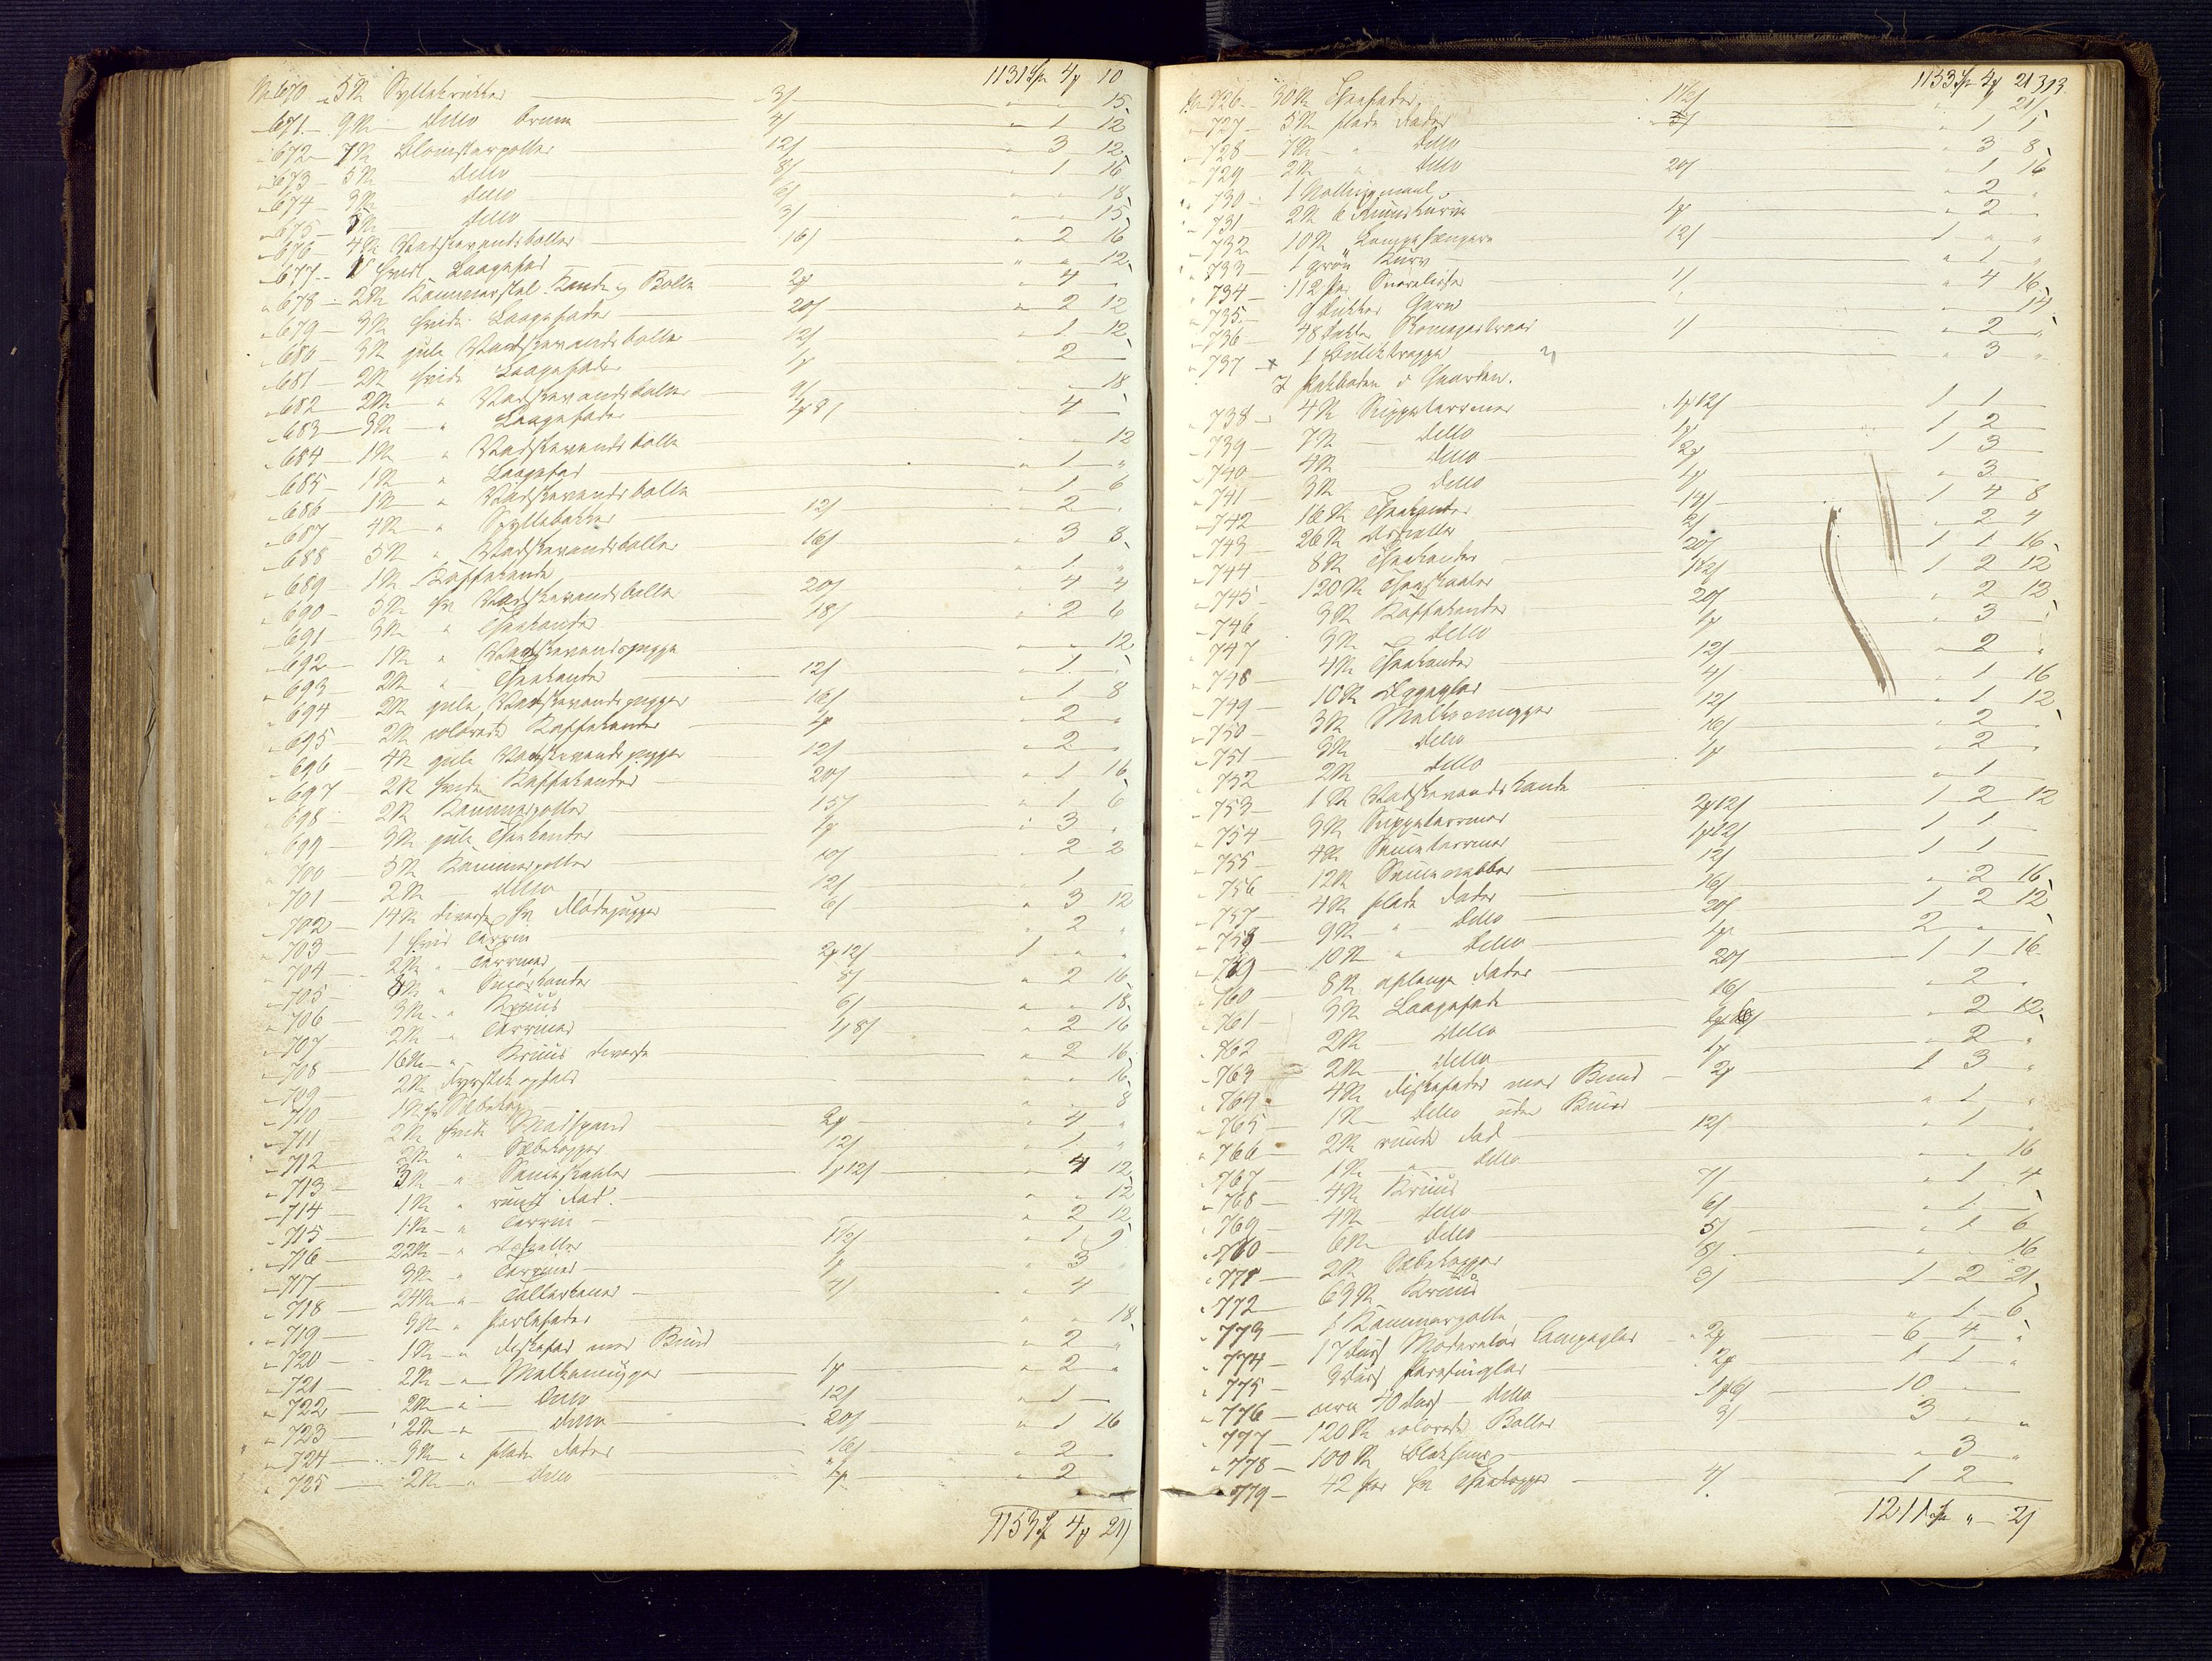 1131 Sp 4 10
No 670 5 St Syltekrukker 3/ " " 15
671 9 St ditto brune 4/ " 1 12
672 7 St Blomsterpotter 12/ " 3 12
673 5 St ditto 8/ " 1 16
674 3 St ditto 6/ " " 18
675 5 St ditto 3/ " " 15
676 4 St Vadskevandsboller 16/ " 2 16
677 1 hvidt Laagefad " " 12
678 2 St Kammerstel Kande og Bolle 2 " 4
679 3 St hvide Laagefader 20/ " 2 12
680 3 St gule Vadskevandsboller 12/ " 1 12
681 2 St hvide Laagefade 1 " 2
682 2 St " Vadskevandsboller 9/ " " 18
683 3 St " Laagefade " 4
684 1 St " Vadskevandsbolle " " 12
685 1 St " Laagefad " 1 "
686 1 St " Vadskevandsbolle " 1 6
687 4 St " 12/ " 2
688 5 St " Vadskevandsboller 16/ " 3 8
689 1 St Kaffekande " 1 "
690 5 St hv Vadskevandsboller 20/ " 4 4
691 3 St " Theekander 18/ " 2 6
692 1 St " Vadskevandsmugge " " 12
693 2 St " Theekander 12/ " 1
694 2 St gule Vadskevandsmugger 16/ " 1 8
695 2 St colorede Kaffekander 1 " 2 "
696 4 St gule Vadskevandsmugger 12/ " 2
697 2 St hvide Kaffekander 20/ " 1 16
698 2 St Kammerpotter 15/ " 1 6
699 3 St gule Theekander 1 " 3 "
700 5 St Kammerpotter 10/ " 2 2
701 2 St ditto 12/ " 1
702 14 St diverse hv Flødemugger 6/ " 3 12
703 1 hvid Terrin " 2 "
704 2 St " Terriner 2 12/ 1 " "
705 8 St " Smørkander 8/ " 2 16
706 3 St " Kruus 6/ " " 18
707 2 St " Terriner 1 8/ " 2 16
708 16 St " Kruus diverse " 2 16
709 2 St " " 16
710 1 St hv Sæbekop " " 8
711 2 St hvide Madspand 2 " 4 "
712 2 St " Sæbekopper 12/ " 1 "
713 3 St " Sauceskaaler 1 12/ " 4 12
714 1 St " rundt Fad " " 12
715 1 St " Terrin " 2 12
716 22 St " Asietter 1½/ " 1 9
717 3 St " Terriner 1 " 3
718 24 St " Tallerkener 4/ " 4
719 3 St " " " 18
720 1 St " Fiskefad med Bund " 2 "
721 2 St " Melkemugger 1 " 2 "
722 2 St " ditto 12/ " 1
723 2 St " ditto 20/ " 1 16
724 3 St " flade Fader 16/ " 2
725 2 St " ditto 1 " 2
1153 Sp 4 21/
1153 Sp 4 21 393
No 726 30 St 1½/ " 21/
727 5 St flade Fader 5/ " 1 5
728 7 St " ditto " 3 8
729 2 St " ditto 20/ " 1 16
730 1 " 2 "
731 2 St 1 " 2
732 10 St Lampehængere 12/ 1 " "
733 1 grøn Kurv " 1 "
734 112 Par Snørelidser 1/ " 4 16
735 9 Dukker Garn " 14
736 48 1/ " 2
737 1 Butiktrappe " 3 "
I Pakboden i Gaarden.
738 4 St Suppeterriner 1 12/ 1 1
739 7 St ditto 1 1 2
740 4 St ditto 2 1 3
741 3 St ditto 1 " 3
742 16 St Theekander 14/ 1 4 8
743 26 St Asietter 2/ " 2 4
744 8 St Theekander 20/ 1 1 16
745 120 St Theeskaaler 1½/ 1 2 12
746 3 St Kaffekander 20/ " 2 12
747 3 St ditto 1 " 3
748 4 St Theekander 12/ " 2 "
749 10 St Æggeglas 4/ " 1 16
750 3 St Melkemugger 12/ " 1 12
751 3 St ditto 16/ " 2
752 2 St ditto 1 " 2 "
753 1 St Vadskevandskande " 1
754 3 St Suppeterriner 2 12/ 1 2 12
755 4 St Sauceterriner 1 12/ 1 1
756 12 St 12/ 1 1
757 4 St flade Fader 16/ " 2 16
758 9 St " ditto 20/ 1 2 12
759 10 St " ditto 1 2 "
760 8 St aflange Fader 20/ 1 1 16
761 3 St Laagefade 16/ " 2 "
762 2 St ditto " 2 12
763 2 St ditto 1 " 2 "
764 4 St Fiskefader med Bund 2 1 3 "
765 1 St ditto uden Bund " 1 "
766 2 St runde Fad 12/ " 1 "
767 1 St " ditto " " 16
768 4 St Kruus 7/ " 1 4
769 4 St ditto 6/ " 1
770 6 St ditto 5/ " 1 6
771 2 St Sæbekopper 8/ " 16
772 63 St Kruus 3/ 1 2 21
773 1 Kammerpotte " 1 6
774 17 Dus Moderatør Lampeglas 2 6 4 "
775 3 Dus Parafinglas 2 1 1 "
776 circa 40 Dus ditto 10
777 120 St colorede Boller 3/ 3 "
778 100 St Blækhuse " 3 "
779 42 Par hv Theekopper 4/ 1 2
1211 Sp " 21